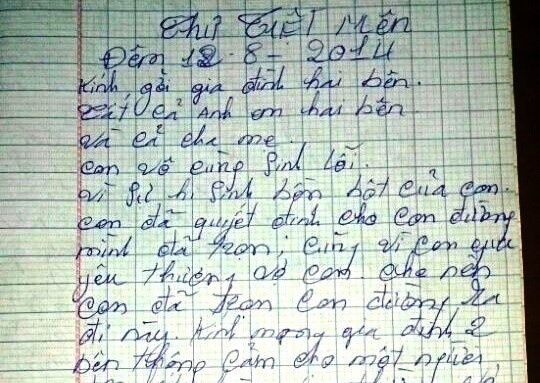 Thư Tuệt Mên
Đêm 12-8-2014
Kính gởi gia đình hai bên.
Tất cả Anh em hai bên.
và cả cha mẹ.
con vô cùng Sinh lỗi.
vì Sự hi Sinh bồn bột của con.
con đã quyết định cho con đường
mình đã trọn; cũng vì con quá
yêu thương vợ con cho nên
con đã trọn con đường ra
đi này kính mong gia đình 2
bên thông cảm cho một người